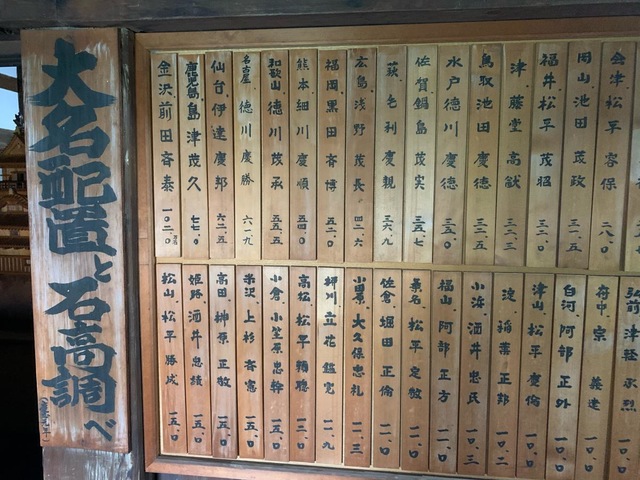 大名配置と石高調べ
金沢 前田斉泰 一〇二、〇
鹿児島 島津茂久 七七、〇
仙台 伊達慶邦 六二、五
名古屋 徳川慶勝 六一、九
和歌山 徳川茂承 五五、五
熊本 細川慶順 五四、〇
福岡 黒田斉博 五二、〇
広島 浅野茂長 四二、六
萩 毛利慶親 三六、九
佐賀 鍋島茂実 三五、七
水戸 徳川慶徳 三五、〇
鳥取 池田慶徳 三二、五
津 藤堂高猷 三二、三
福井 松平茂昭 三二、〇
岡山 池田茂政 三一、五
会津 松平容保 二八、〇
松山 松平勝成 一五、〇
姫路 酒井忠績 一五、〇
高田 榊原正敬 一五、〇
米沢 上杉斉憲 一五、〇
小倉 小笠原忠幹 一五、〇
高松 松平頼聰 一二、〇
柳川 立花鑑寛 一一、九
小田原 大久保忠礼 一一、三
佐倉 堀田正倫 一一、〇
桑名 松平定敬 一一、〇
福山 阿部正方 一一、〇
小浜 酒井忠氏 一〇、三
淀 稲葉正邦 一〇、二
津山 松平慶倫 一〇、〇
白河 阿部正外 一〇、〇
府中 宗義達 一〇、〇
弘前 津軽承烈 一〇、〇